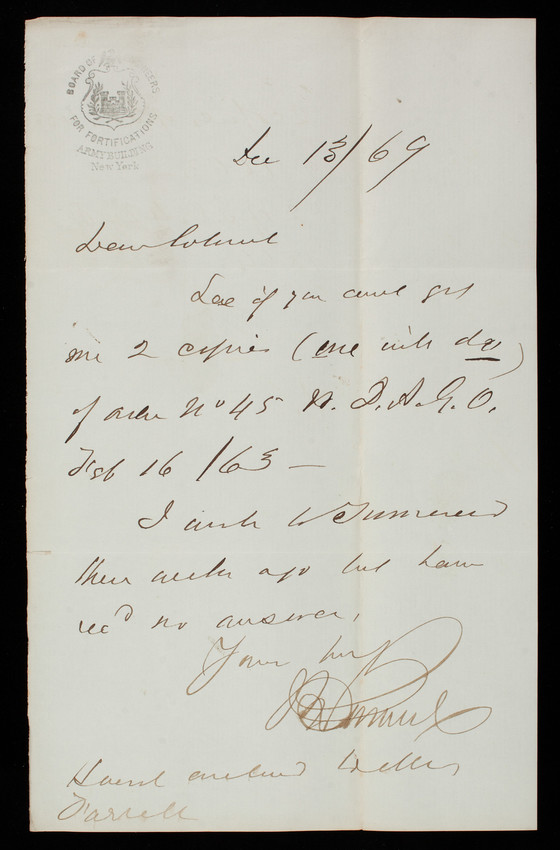 BOARD OF ENGINEERS
FOR FORTIFICATIONS
ARMY BUILDING
New York
Dec 13/69
Dear Colonel
See if you can't get
me 2 copies (one will do)
of order No 45 A. G. O.
Feb 16 /63 —
I wrote to Townsend
three weeks ago but have
rec'd no answer,
Yours truly
Hand enclosed to